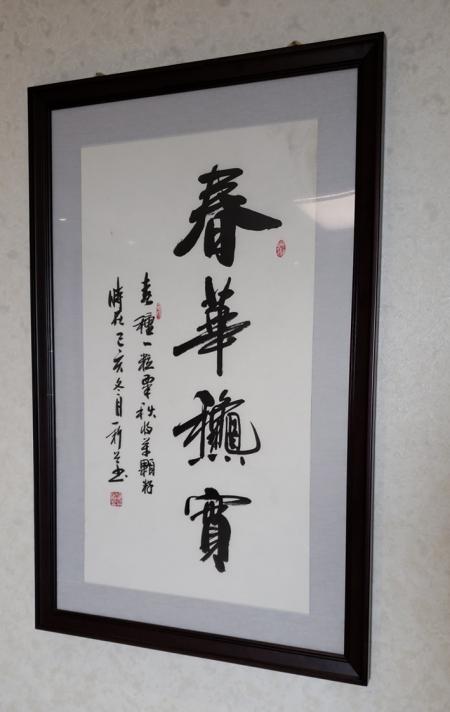 春華龝實
春種一粒粟秋收萬顆籽
時在己亥冬月一新書